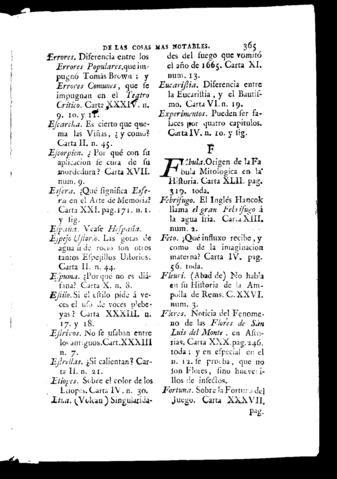 DE LAS COSAS MAS NOTABLES. 365
Errores. Diferencia entre los
Errores Populares, que im-
pugnó Tomás Brown; y
Errores Comunes, que se
impugnan en el Teatro
Crítico. Carta XXXIV. n.
9. 10. y 11.
Escarcha. Es cierto que que-
ma las Viñas, ¿ y como?
Carta II. n. 45.
Escorpion. ¿ Por qué con su
aplicacion se cura de su
mordedura? Carta XVII.
num. 9.
Esfera. ¿Qué significa Esfe-
ra en el Arte de Memoria?
Carta XXI. pag. 171. n. 1.
y sig.
España. Vease Hespaña.
Espejo Ustorio. Las gotas de
agua ú de rocio son otros
tantos Espejillos Ustorios.
Carta II. n. 44.
Espuma. ¿Porque no es diá-
fana? Carta X. n. 8.
Estilo. Si el estilo pide á ve-
ces el uso de voces plebe-
yas? Carta XXXIII. n.
17. y 18.
Estrivos. No se usaban entre
los antiguos. Cart. XXXIII
n. 7.
Estrellas. ¿Si calientan? Car-
ta II. n. 21.
Etiopes. Sobre el color de los
Etiopes. Carta IV. n. 30.
Etna. (Volcan) Singularida-
des del fuego que vomitó
el año de 1665. Carta XI.
num. 13.
Eucaristia. Diferencia entre
la Eucaristía, y el Bautis-
mo. Carta VI. n. 19.
Experimentos. Pueden ser fa-
laces por quatro capitulos.
Carta IV. n. 10. y sig.
F
Fabula. Origen de la Fa
bula Mitologica en la
Historia. Carta XLII. pag.
319. toda.
Febrifugo. El Inglés Hancok
llama el gran Febrifugo á
la agua fria. Carta XIII.
num. 2.
Feto. ¿Qué influxo recibe, y
como de la imaginacion
materna? Carta IV. pag.
56. toda.
Fleuri. (Abad de) No habla
en su Historia de la Am-
polla de Rems. C. XXVI.
num. 3.
Flores. Noticia del Fenome-
no de las Flores de San
Luis del Monte, en Astu-
rias. Carta XXX. pag. 246.
toda; y en especial en el
n. 12. se prueba, que no
son Flores, sino hueveci-
llos de insectos.
Fortuna. Sobre la Fortuna del
Juego. Carta XXXVII,
pag.